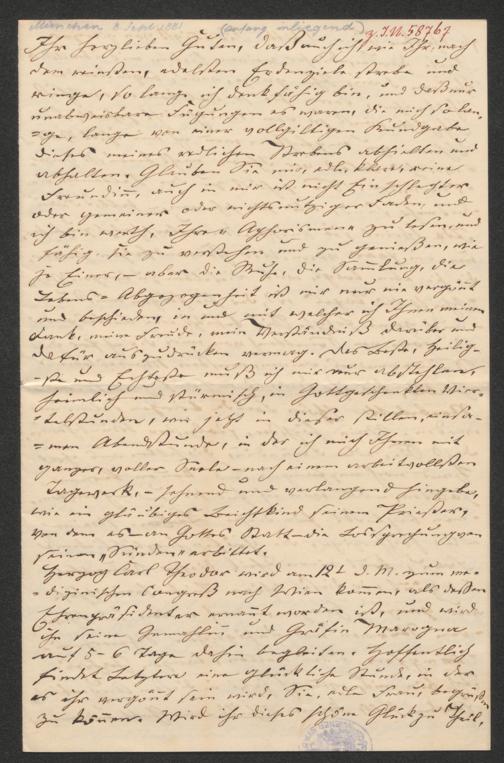 München 8. Sept. 1881 (Anfang inliegend) z. I.N. 58767
Ihr herzlieben Guten, daß auch ich wie Ihr, nach
den reinsten, edelsten Erdenziele strebe und
ringe, so lange ich denkfähig bin, und daß nur
unabweisbare Fügungen es waren, die mich so lan-
=ge, lange von einer vollgiltigen Kundgabe
dieses meines redlichen Strebens abhielten und
abhalten. Glauben Sie mir, edle, klare, reine
Freundin, auch in mir ist nicht Ein schlechter
oder gemeiner oder nichtsnutziger Faden, und
ich bin werth, Ihre Aphorismen zu lesen, und
fähig, sie zu verstehen und zu genießen, wie
je Einer, – aber die Muße, die Sammlung, die
Lebens-Abgezogenheit ist mir nur nie vergönnt
und beschieden, in und mit welcher ich Ihnen meinen
Dank, meine Freude, mein Verständniß darüber und
dafür auszudrücken vermag. Das Beste, Heilig-
ste und Echteste muß ich mir nur abstehlen,
heimlich und stürmisch, in Gottgeschenkten Vier-
=telstunden, wie jetzt in dieser stillen, einsa-
=men Abendstunde, in der ich mich Ihnen mit
ganzer, voller Seele – nach einem arbeitvollsten
Tagewerk, – sehnend und verlangend hingebe,
wie ein gläubiges Beichtkind seinem Priester,
von dem es – an Gottes Statt – die Lossprechung von
seinen „Sünden" erbittet.
Herzog Carl Theodor wird am 12t d. M. zum me-
=dizinischen Congreß nach Wien kommen, als dessen
Ehrenpräsident er ernannt worden ist, und wird
ihn seine Gemahlin und Gräfin Marogna
auf 5-6 Tage dahin begleiten. Hoffentlich
findet Letztere eine glückliche Stunde, in der
es ihr vergönnt sein wird, Sie, edle Frau, begrüßen
zu können. Wird ihr dieses schöne Glück zu Theil,